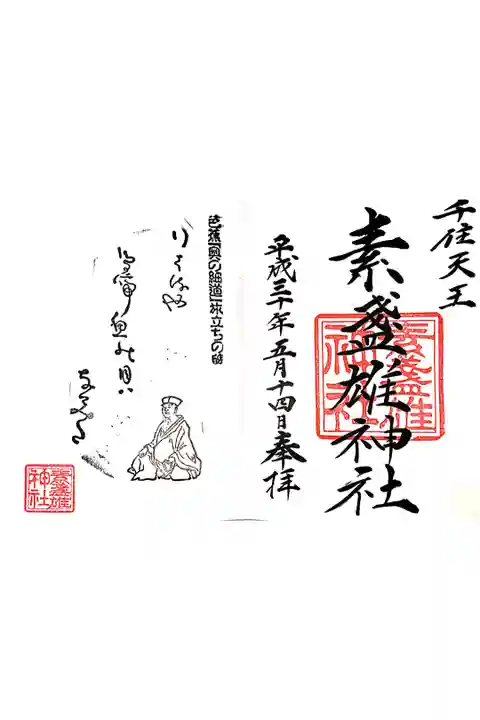 千住天王
素盞雄神社
素盞雄神社
平成三十年五月十四日奉拝
芭蕉「奥の細道」旅立ちの
行くはるや
鳥啼魚の目は
なみだ
素盞雄神社